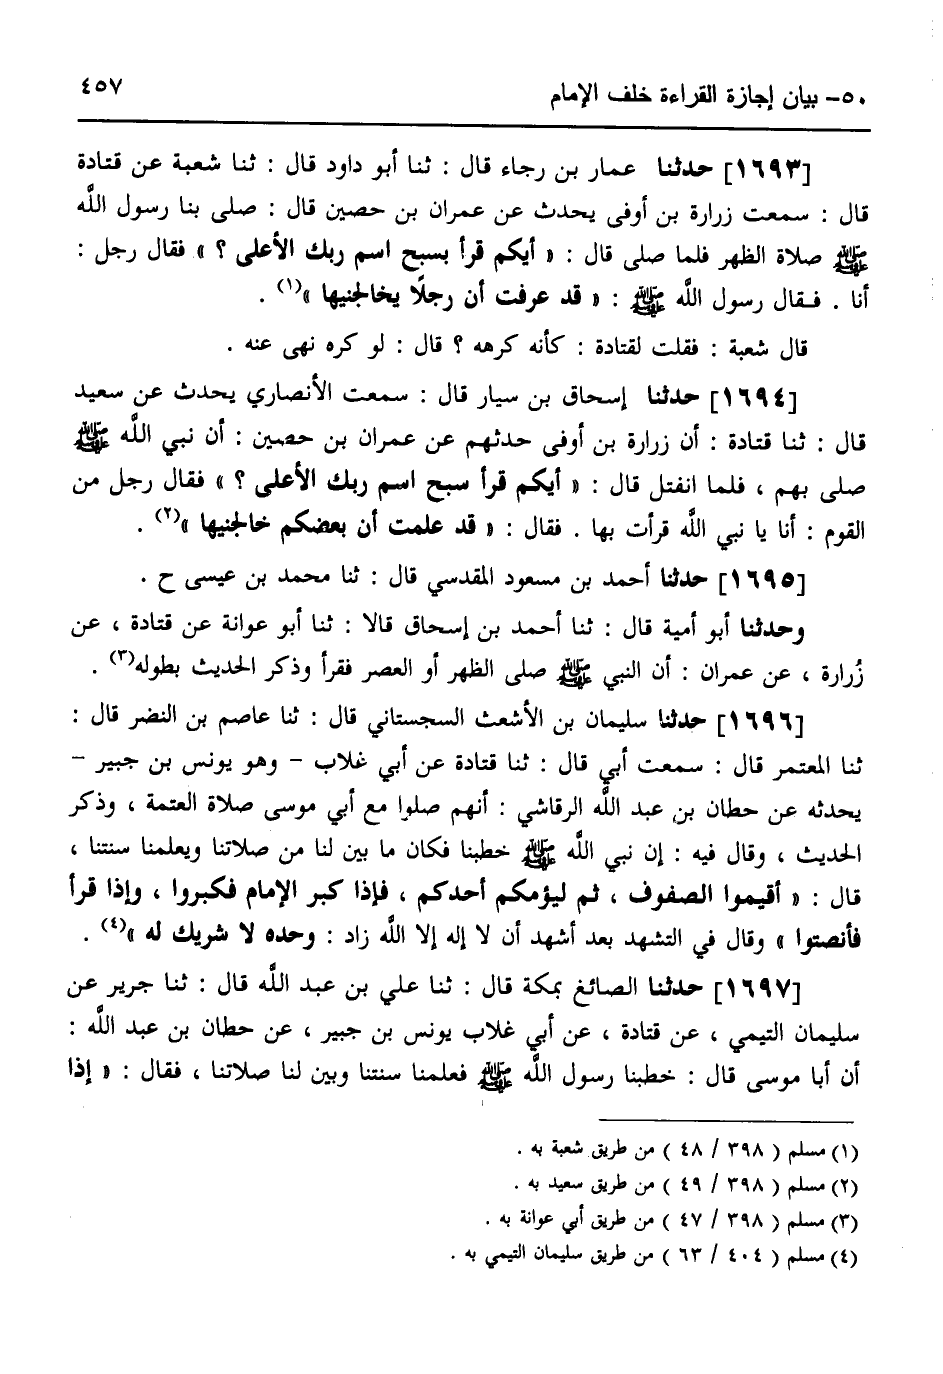 ٥٠- بيان إجازة القراءة خلف الإمام ٤٥٧
[١٦٩٣] حدثنا عمار بن رجاء قال : ثنا أبو داود قال : ثنا شعبة عن قتادة
قال : سمعت زرارة بن أوفى يحدث عن عمران بن حصين قال : صلى بنا رسول اللَّه
ﷺ صلاة الظهر فلما صلى قال : « أيكم قرأ بسبح اسم ربك الأعلى ؟ » فقال رجل :
أنا . فقال رسول اللَّه ﷺ : « قد عرفت أن رجلًا يخالجنيها »(١) .
قال شعبة : فقلت لقتادة : كأنه كرهه ؟ قال : لو كره نهى عنه .
[١٦٩٤] حدثنا إسحاق بن سيار قال : سمعت الأنصاري يحدث عن سعيد
قال : ثنا قتادة : أن زرارة بن أوفى حدثهم عن عمران بن حصين : أن نبي اللَّه ﷺ
صلى بهم ، فلما انفتل قال : « أيكم قرأ سبح اسم ربك الأعلى ؟ » فقال رجل من
القوم : أنا يا نبي اللَّه قرأت بها . فقال : « قد علمت أن بعضكم خالجنيها »(٢) .
[١٦٩٥] حدثنا أحمد بن مسعود المقدسي قال : ثنا محمد بن عيسى ح .
وحدثنا أبو أمية قال : ثنا أحمد بن إسحاق قالا : ثنا أبو عوانة عن قتادة ، عن
زُرارة ، عن عمران : أن النبي ﷺ صلى الظهر أو العصر فقرأ وذكر الحديث بطوله(٣) .
[١٦٩٦] حدثنا سليمان بن الأشعث السجستاني قال : ثنا عاصم بن النضر قال :
ثنا المعتمر قال : سمعت أبي قال : ثنا قتادة عن أبي غلاب - وهو يونس بن جبير -
يحدثه عن حطان بن عبد اللَّه الرقاشي : أنهم صلوا مع أبي موسى صلاة العتمة ، وذكر
الحديث ، وقال فيه : إن نبي اللَّه ﷺ خطبنا فكان ما بين لنا من صلاتنا ويعلمنا سنتنا ،
قال : « أقيموا الصفوف ، ثم ليؤمكم أحدكم ، فإذا كبر الإمام فكبروا ، وإذا قرأ
فأنصتوا » وقال في التشهد بعد أشهد أن لا إله إلا اللَّه زاد : وحده لا شريك له »(٤) .
[١٦٩٧] حدثنا الصائغ بمكة قال : ثنا علي بن عبد اللَّه قال : ثنا جرير عن
سليمان التيمي ، عن قتادة ، عن أبي غلاب يونس بن جبير ، عن حطان بن عبد اللَّه :
أن أبا موسى قال : خطبنا رسول اللَّه ﷺ فعلمنا سنتنا وبين لنا صلاتنا ، فقال : « إذا
(١) مسلم ( ٣٩٨ / ٤٨ ) من طريق شعبة به .
(٢) مسلم ( ٣٩٨ / ٤٩ ) من طريق سعيد به .
(٣) مسلم ( ٣٩٨ / ٤٧ ) من طريق أبي عوانة به .
(٤) مسلم ( ٤٠٤ / ٦٣ ) من طريق سليمان التيمي به .